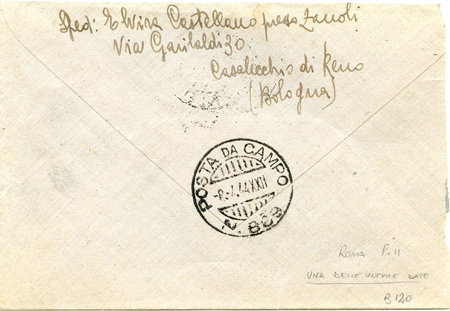 Sped: Elvira Castellano presso Zanoli
Via Garibaldi 30
Casalecchio di Reno
(Bologna)
POSTA DA CAMPO
XXII
N. 853
P. 11
UNA DELLE ULTIME DATE
B 120